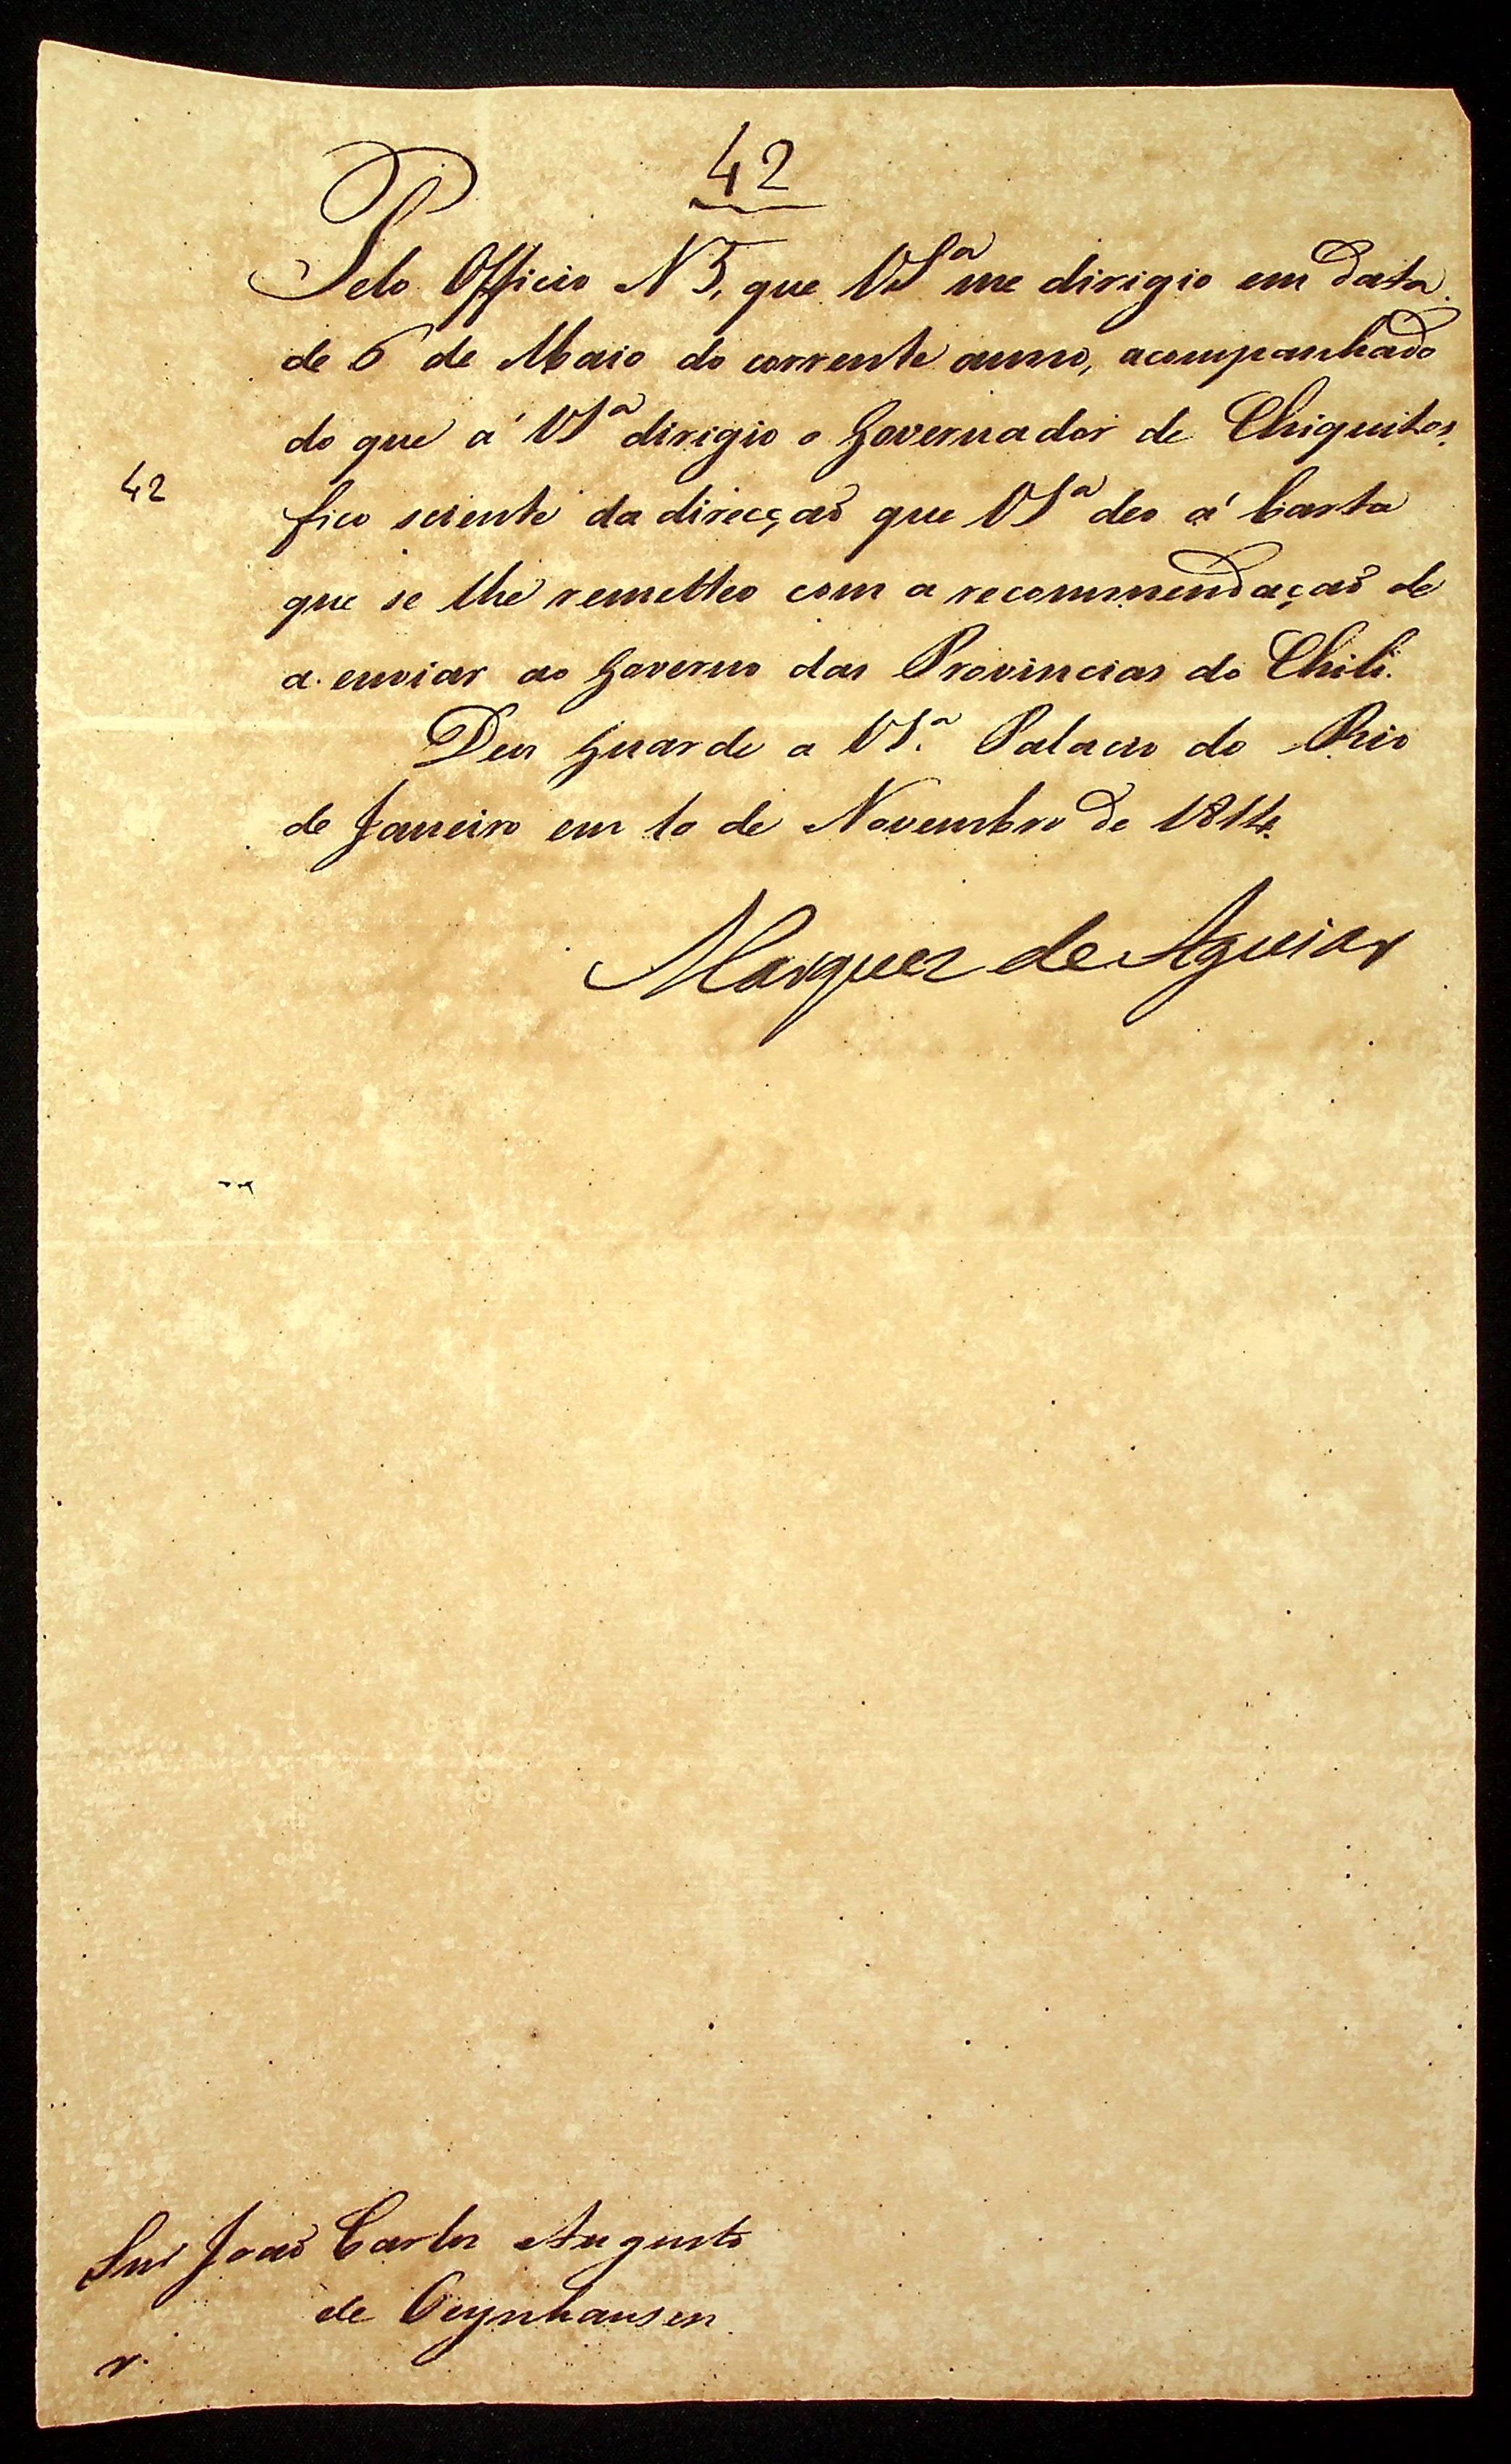 42
Pelo Officio N 5, que VSª me dirigio em data
de 6 de Maio do corrente anno, acompanhado
do que á VSª dirigio o Governador de Chiquitos,
42
fico sciente da direcçaõ que VSª deo á Carta
que se lhe remetteo com a recommendaçaõ de
a enviar ao Governo das Provincias do Chili.
Deos Guarde a VS.ª Palacio do Rio
de Janeiro em 10 de Novembro de 1814.
Marquez de Aguiar
Snr Joaõ Carlos Augusto
de Oeynhausen